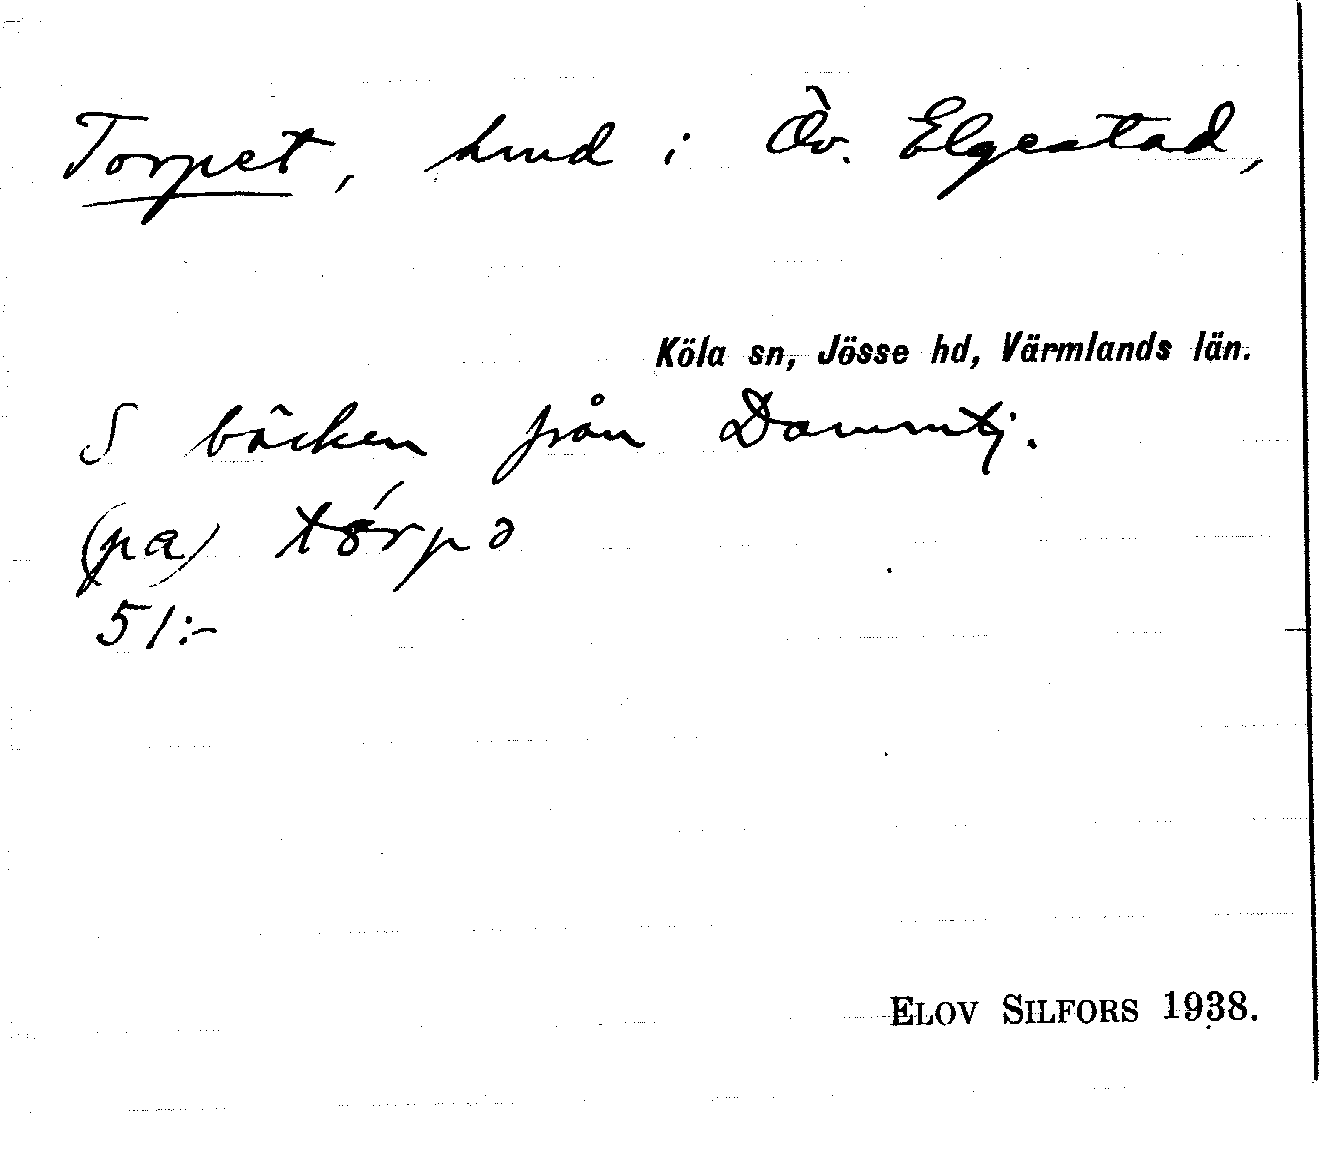 Torpet, hmd i Öv. Elgestad,
Köla sn, Jösse hd, Värmlands län.
S bäcken från Dammtj.
(pa) tórpə
51:-
ELOV SILFORS 1938.